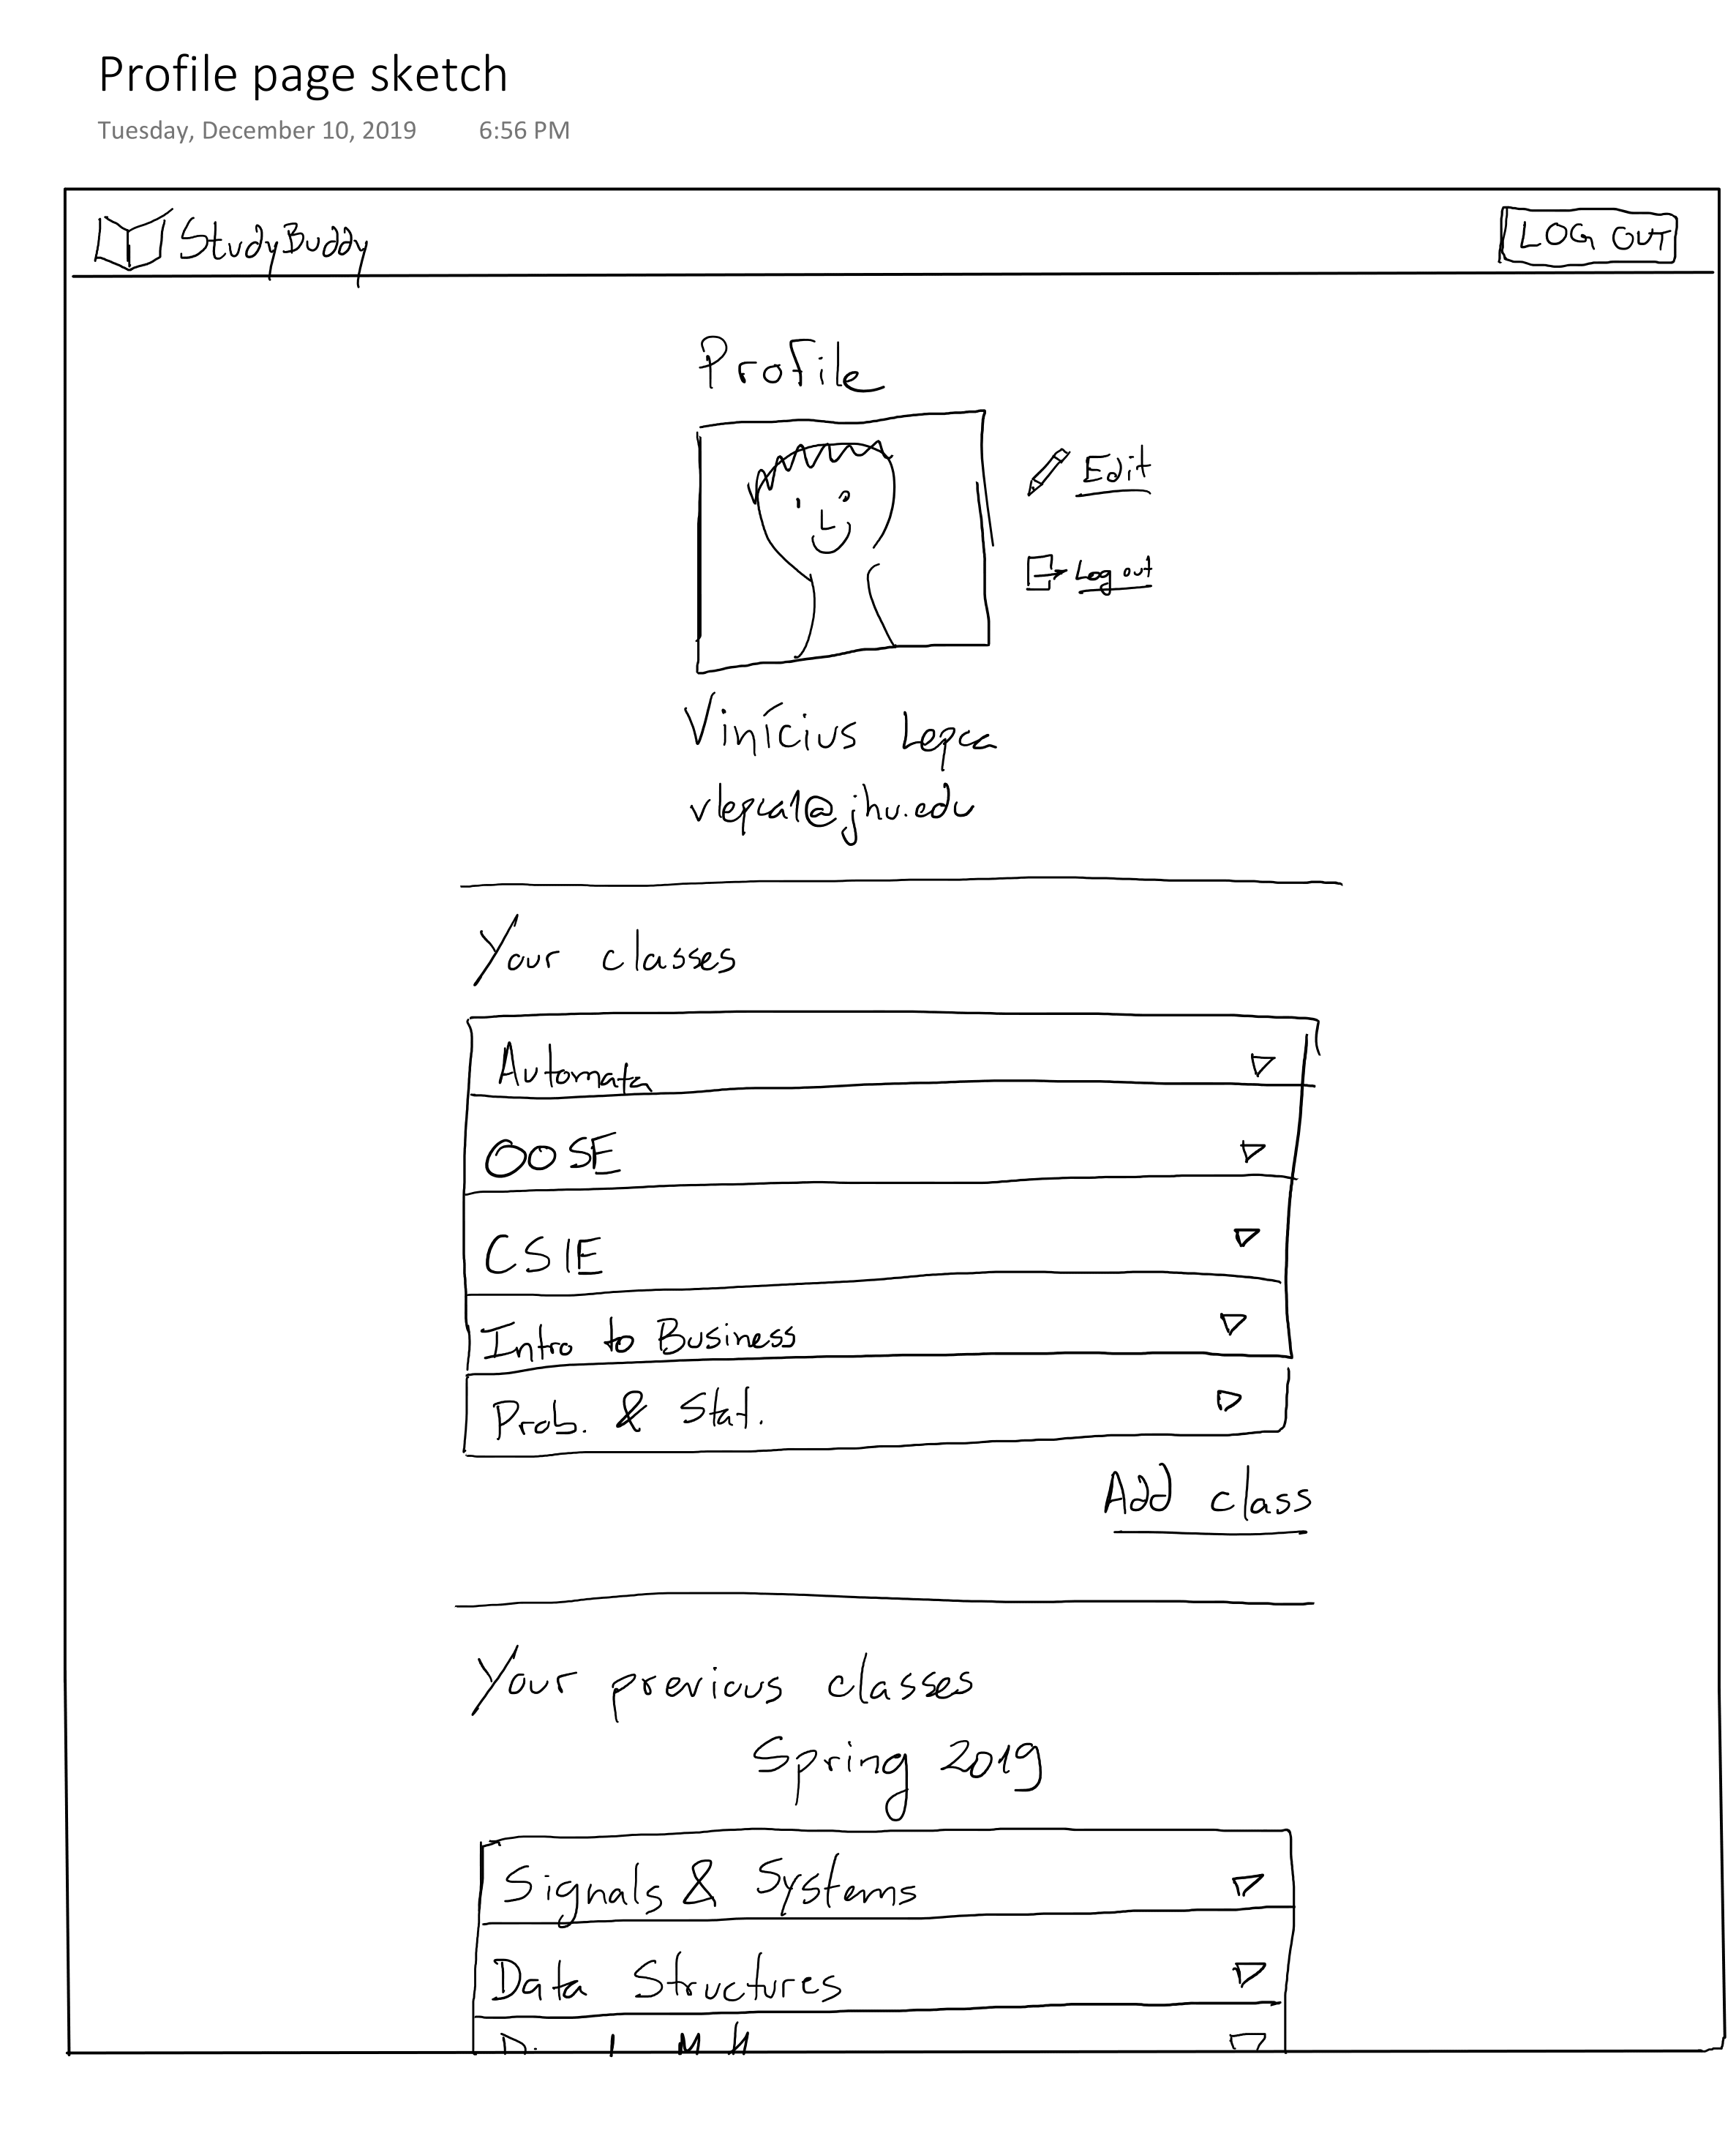 Profile page sketch
Tuesday, December 10, 2019 6:56 PM
StudyBuddy LOG OUT
Profile
Edit
Log out
Vinícius Lepca
vlepca1@jhu.edu
Your classes
Automata
OOSE
CSIE
Intro to Business
Prob. & Stat.
Add class
Your previous classes
Spring 2019
Signals & Systems
Data Structures